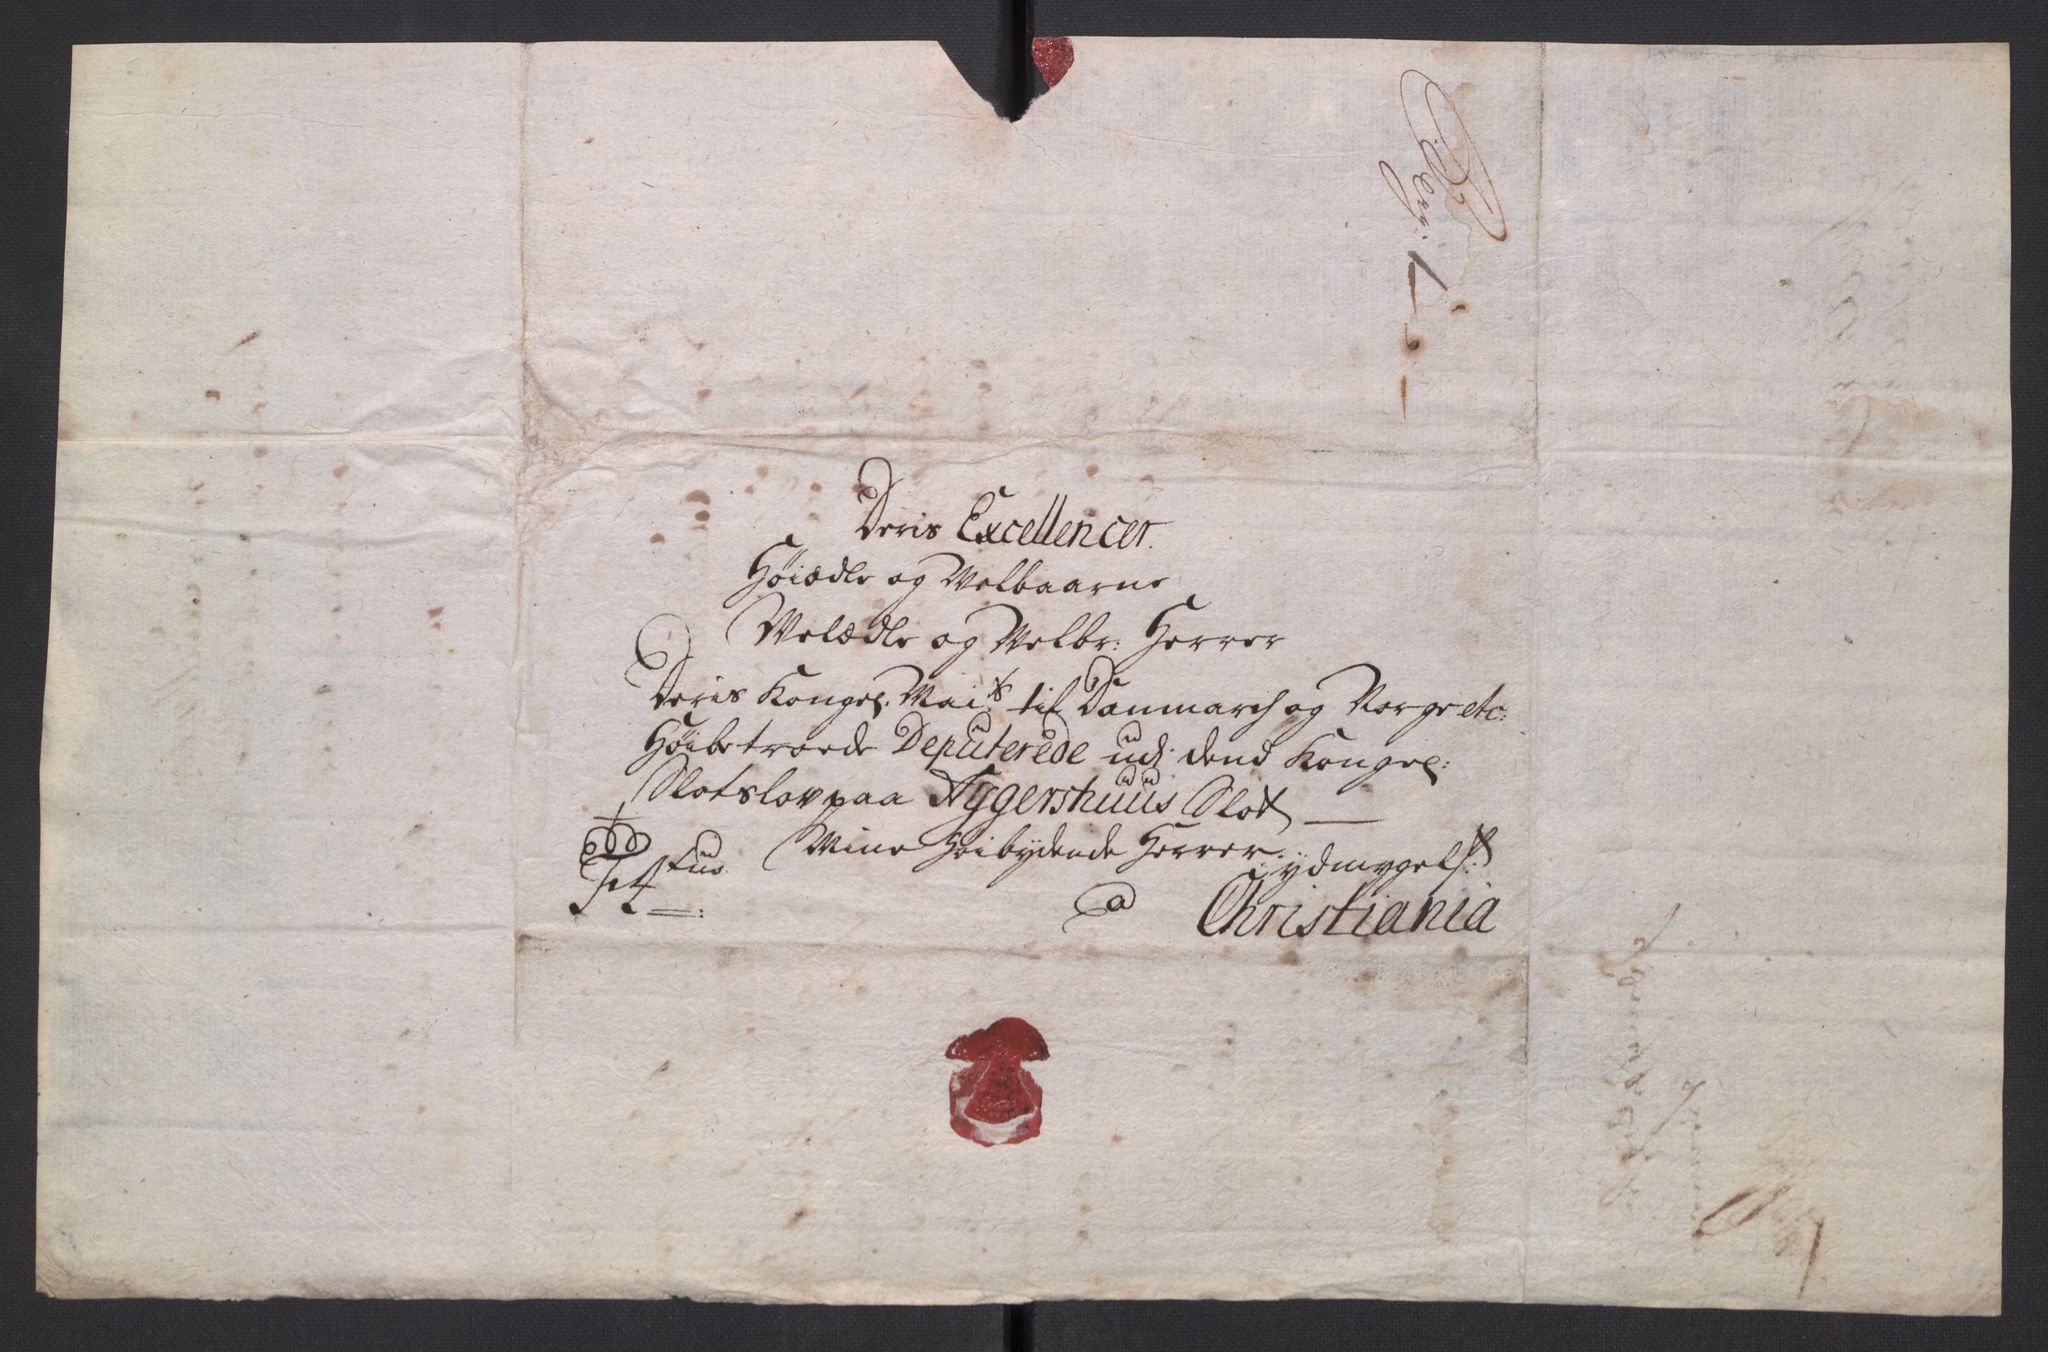 Deris Excellencer.
Høiædle og Velbaarne
Velædle og Velbr: Herrer
Deris Kongel. Mai.ts til Danmarch og Norge etc:
Høibetroede Deputerede udj dend Kongel:
Slotslov paa Aggershuus Slot
Mine høibydende Herrer. ydmygel.st
a Christiania